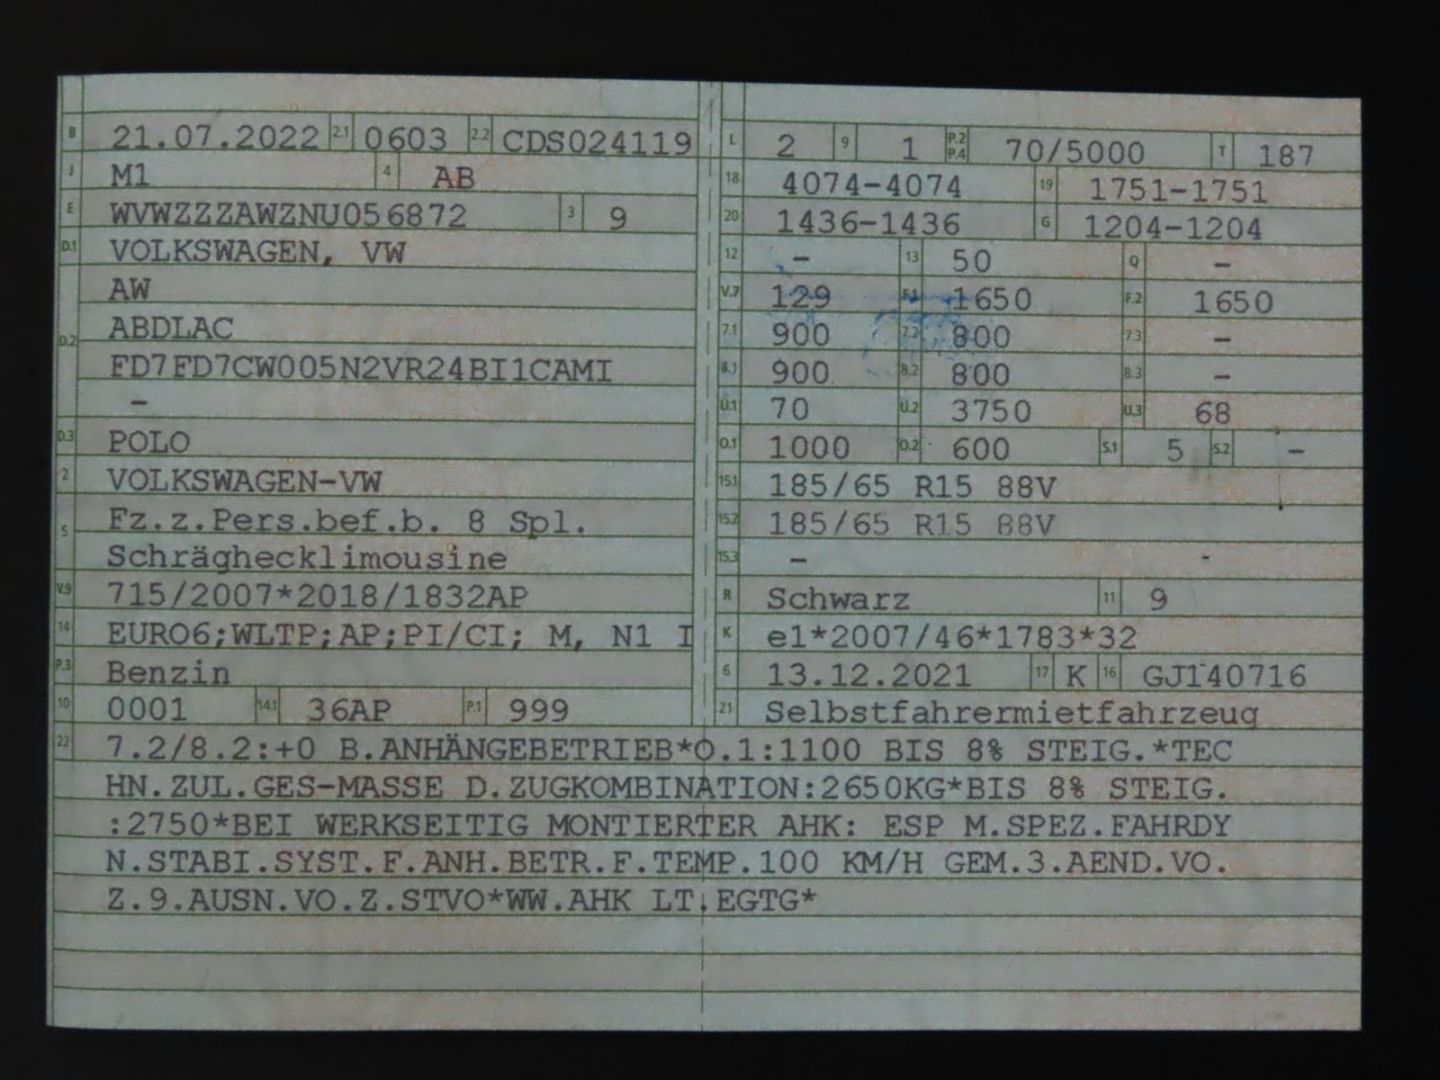 B 21.07.2022 2.1 0603 2.2 CDS024119
J M1 4 AB
E WVWZZZAWZNU056872 3 9
D.1 VOLKSWAGEN, VW
AW
D.2 ABDLAC
FD7FD7CW005N2VR24BI1CAMI
–
D.3 POLO
2 VOLKSWAGEN-VW
5 Fz.z.Pers.bef.b. 8 Spl.
Schräghecklimousine
V.9 715/2007*2018/1832AP
14 EURO6;WLTP;AP;PI/CI; M, N1 I
P.3 Benzin
10 0001 14.1 36AP P.1 999
L 2 9 1 P.2 P.4 70/5000 T 187
18 4074-4074 19 1751-1751
20 1436-1436 G 1204-1204
12 – 13 50 Q –
V.7 129 F.1 1650 F.2 1650
7.1 900 7.2 800 7.3 –
8.1 900 8.2 800 8.3 –
U.1 70 U.2 3750 U.3 68
O.1 1000 O.2 600 S.1 5 S.2 –
15.1 185/65 R15 88V
15.2 185/65 R15 88V
15.3 –
R Schwarz 11 9
K e1*2007/46*1783*32
6 13.12.2021 17 K 16 GJ140716
21 Selbstfahrermietfahrzeug
22 7.2/8.2:+0 B.ANHÄNGEBETRIEB*O.1:1100 BIS 8% STEIG.*TEC
HN.ZUL.GES-MASSE D.ZUGKOMBINATION:2650KG*BIS 8% STEIG.
:2750*BEI WERKSEITIG MONTIERTER AHK: ESP M.SPEZ.FAHRDY
N.STABI.SYST.F.ANH.BETR.F.TEMP.100 KM/H GEM.3.AEND.VO.
Z.9.AUSN.VO.Z.STVO*WW.AHK LT.EGTG*